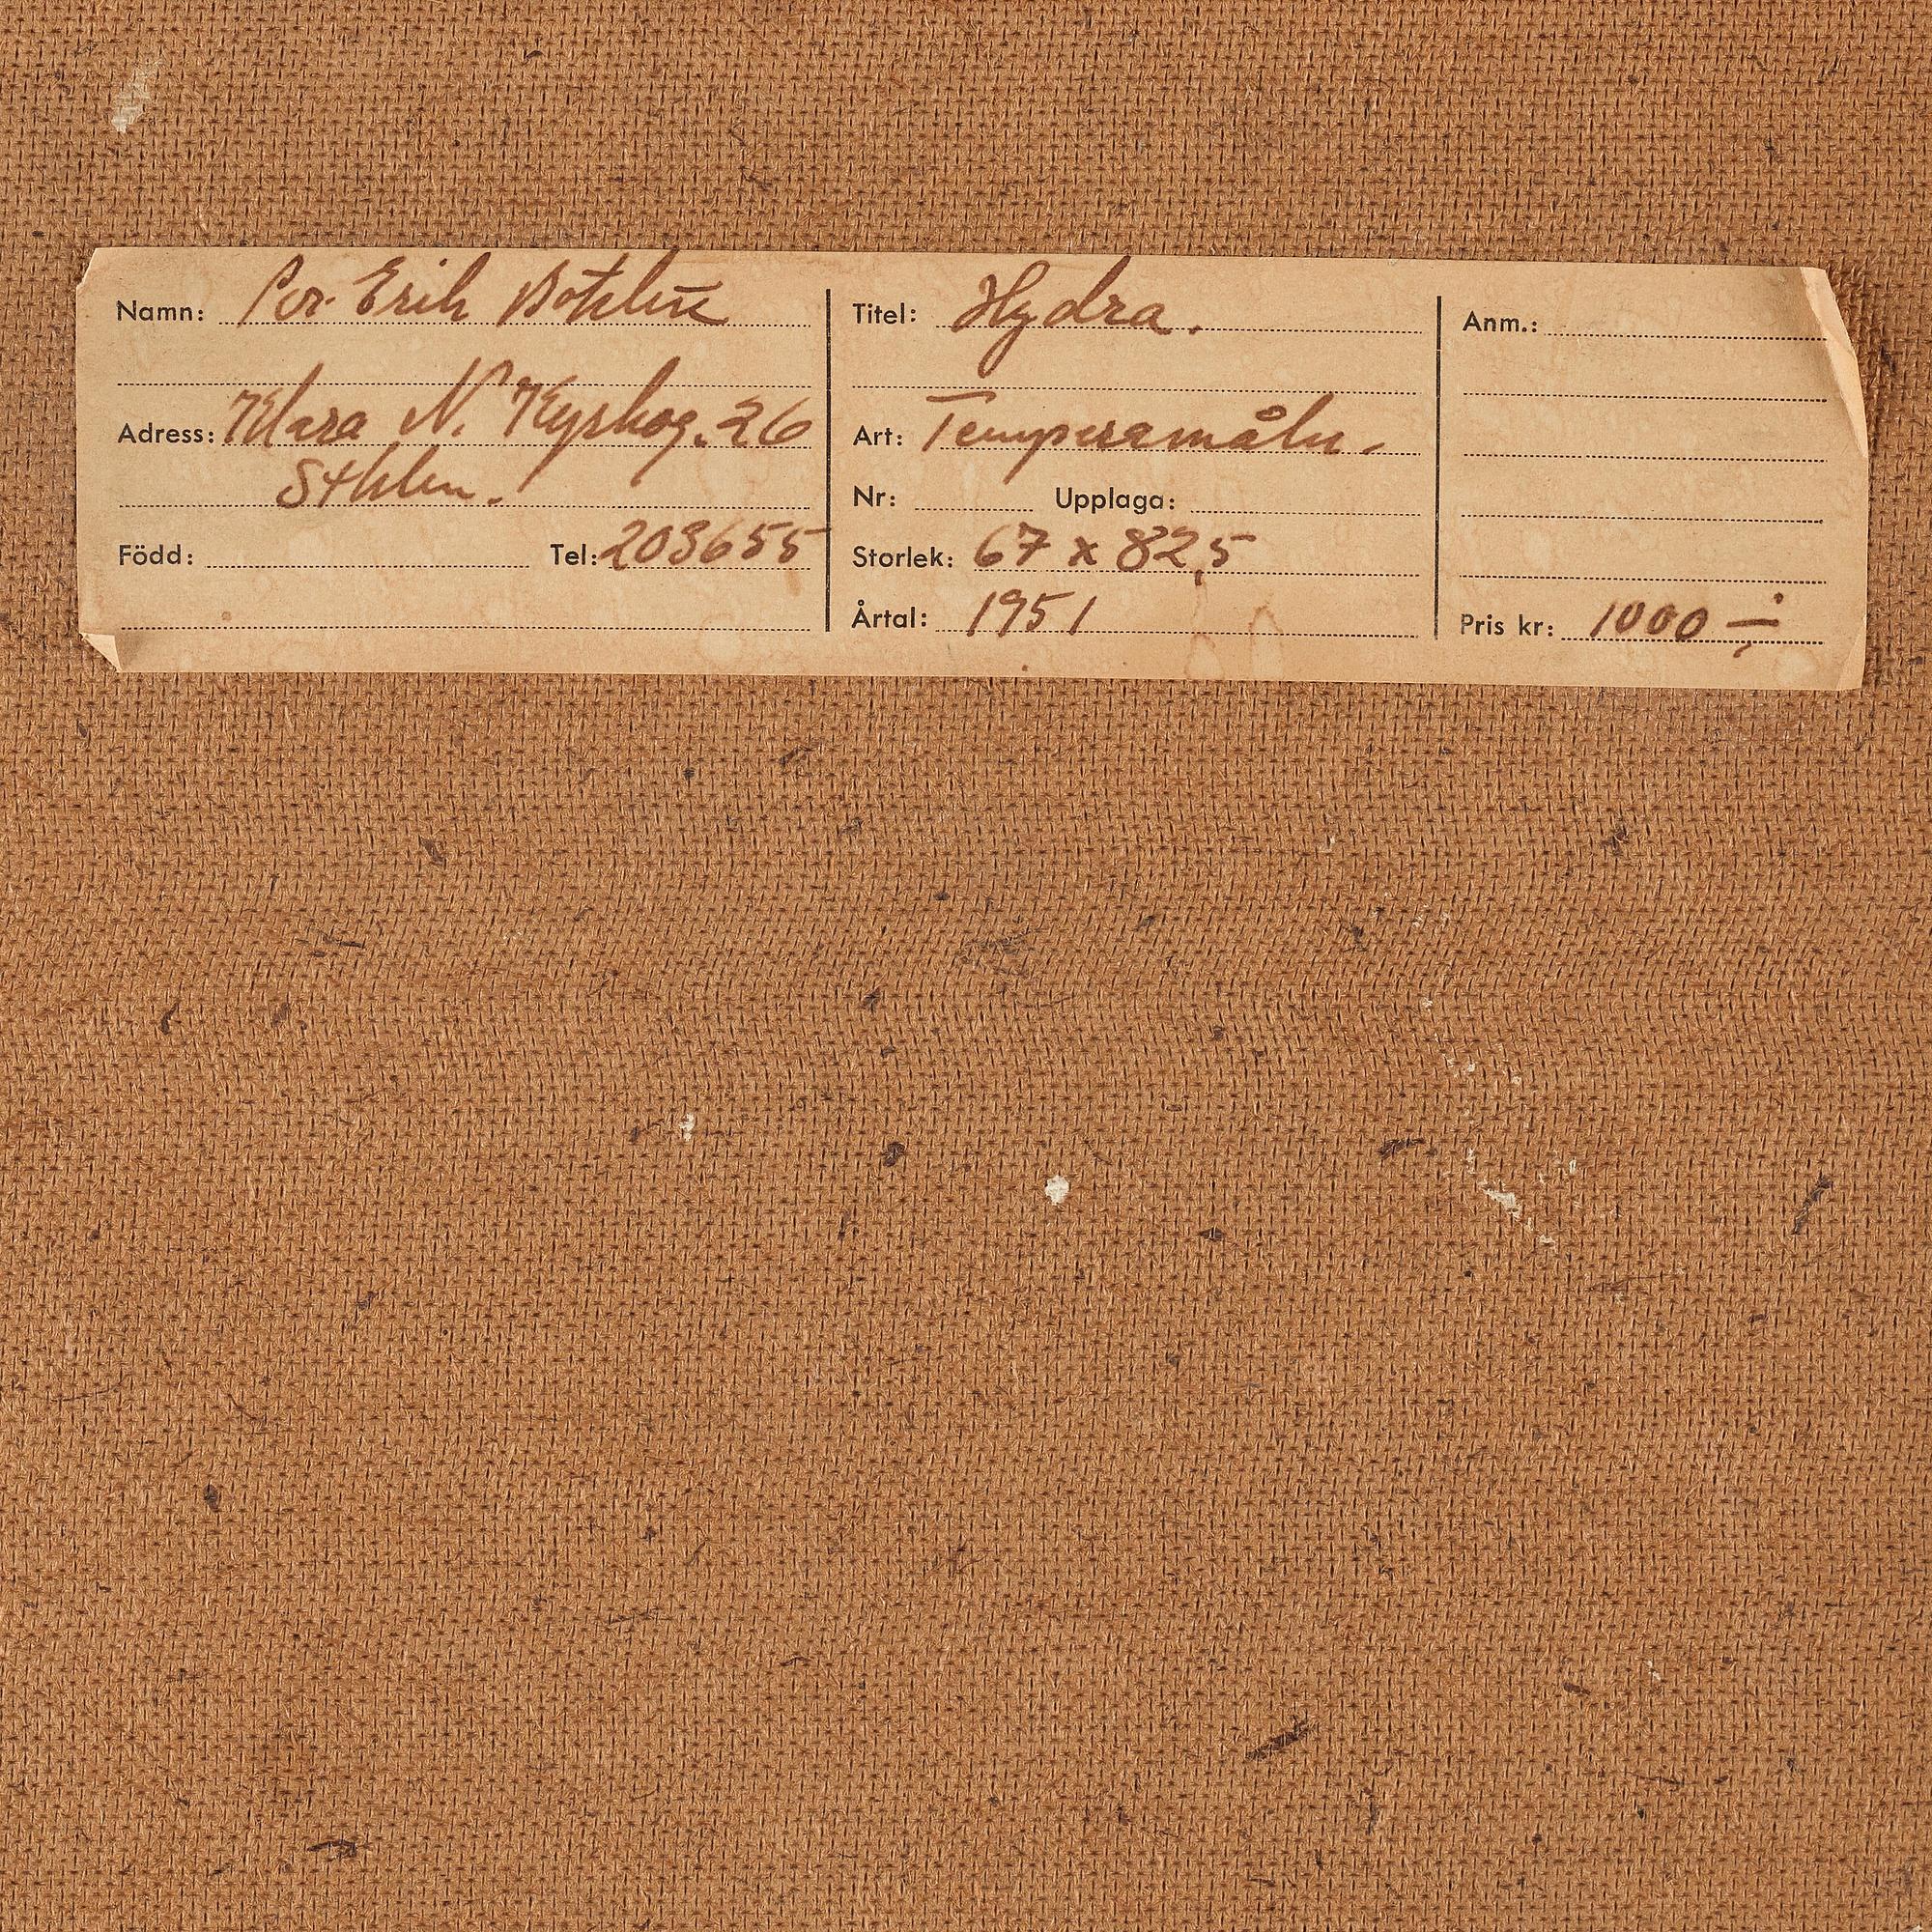 Namn: Per-Erik Böhlin
Adress: Klara N. Kyrkog. 26
Sthlm.
Född: Tel: 203655
Titel: Hydra.
Art: Temperamåln.
Nr: Upplaga:
Storlek: 67 x 82,5
Årtal: 1951
Anm.:
Pris kr: 1000 ÷